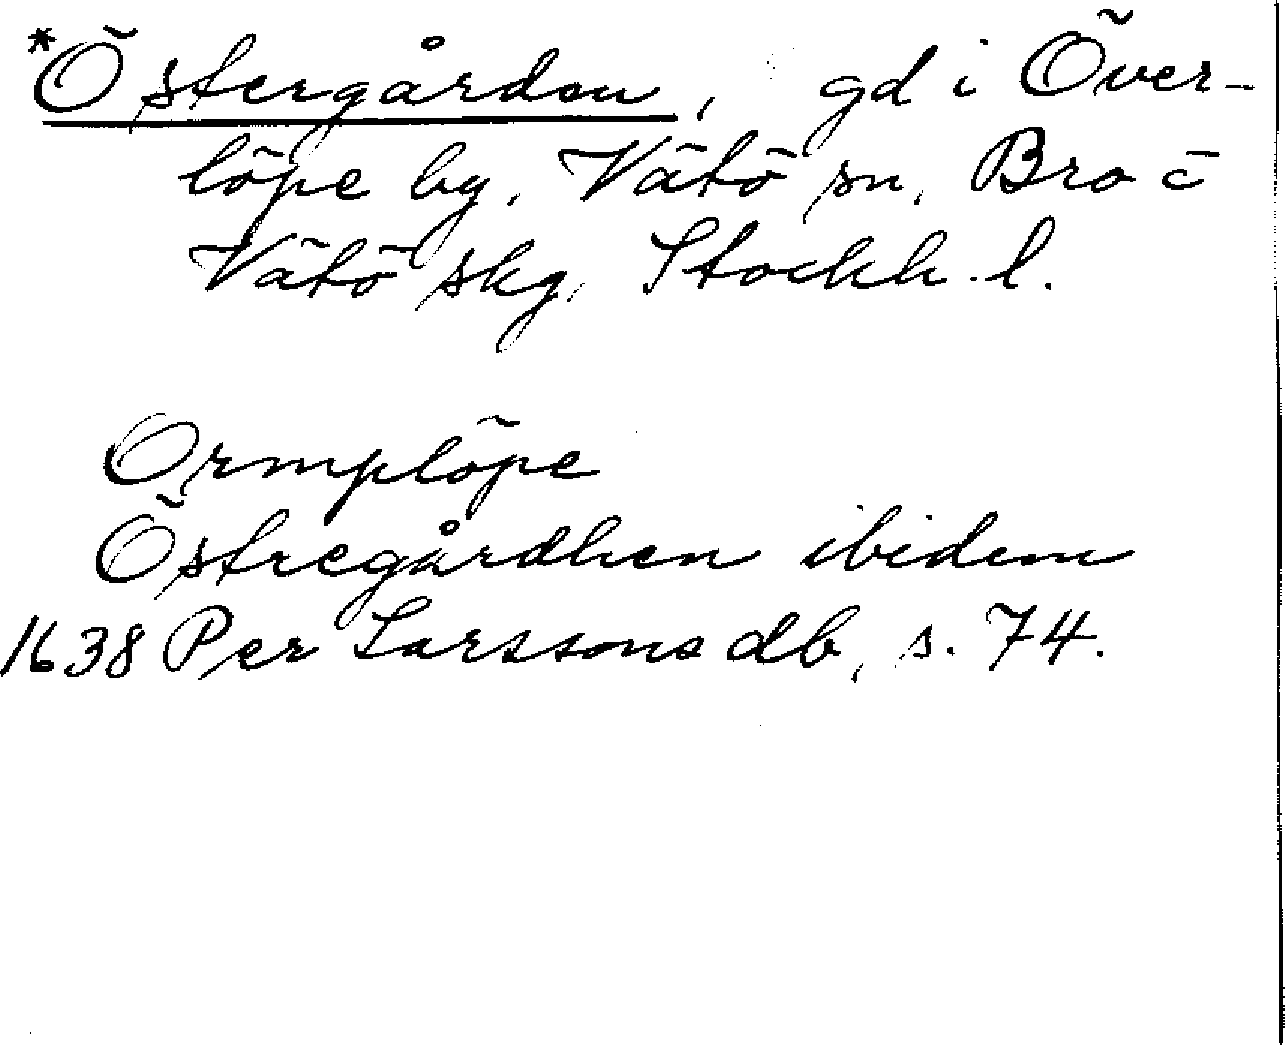 *Östergården, gd i Över-
löpe by, Vätö sn, Bro o
Vätö skg, Stockh. l.
Ormplöpe
Östregårdhen ibidem
1638 Per Larssons db, s. 74.